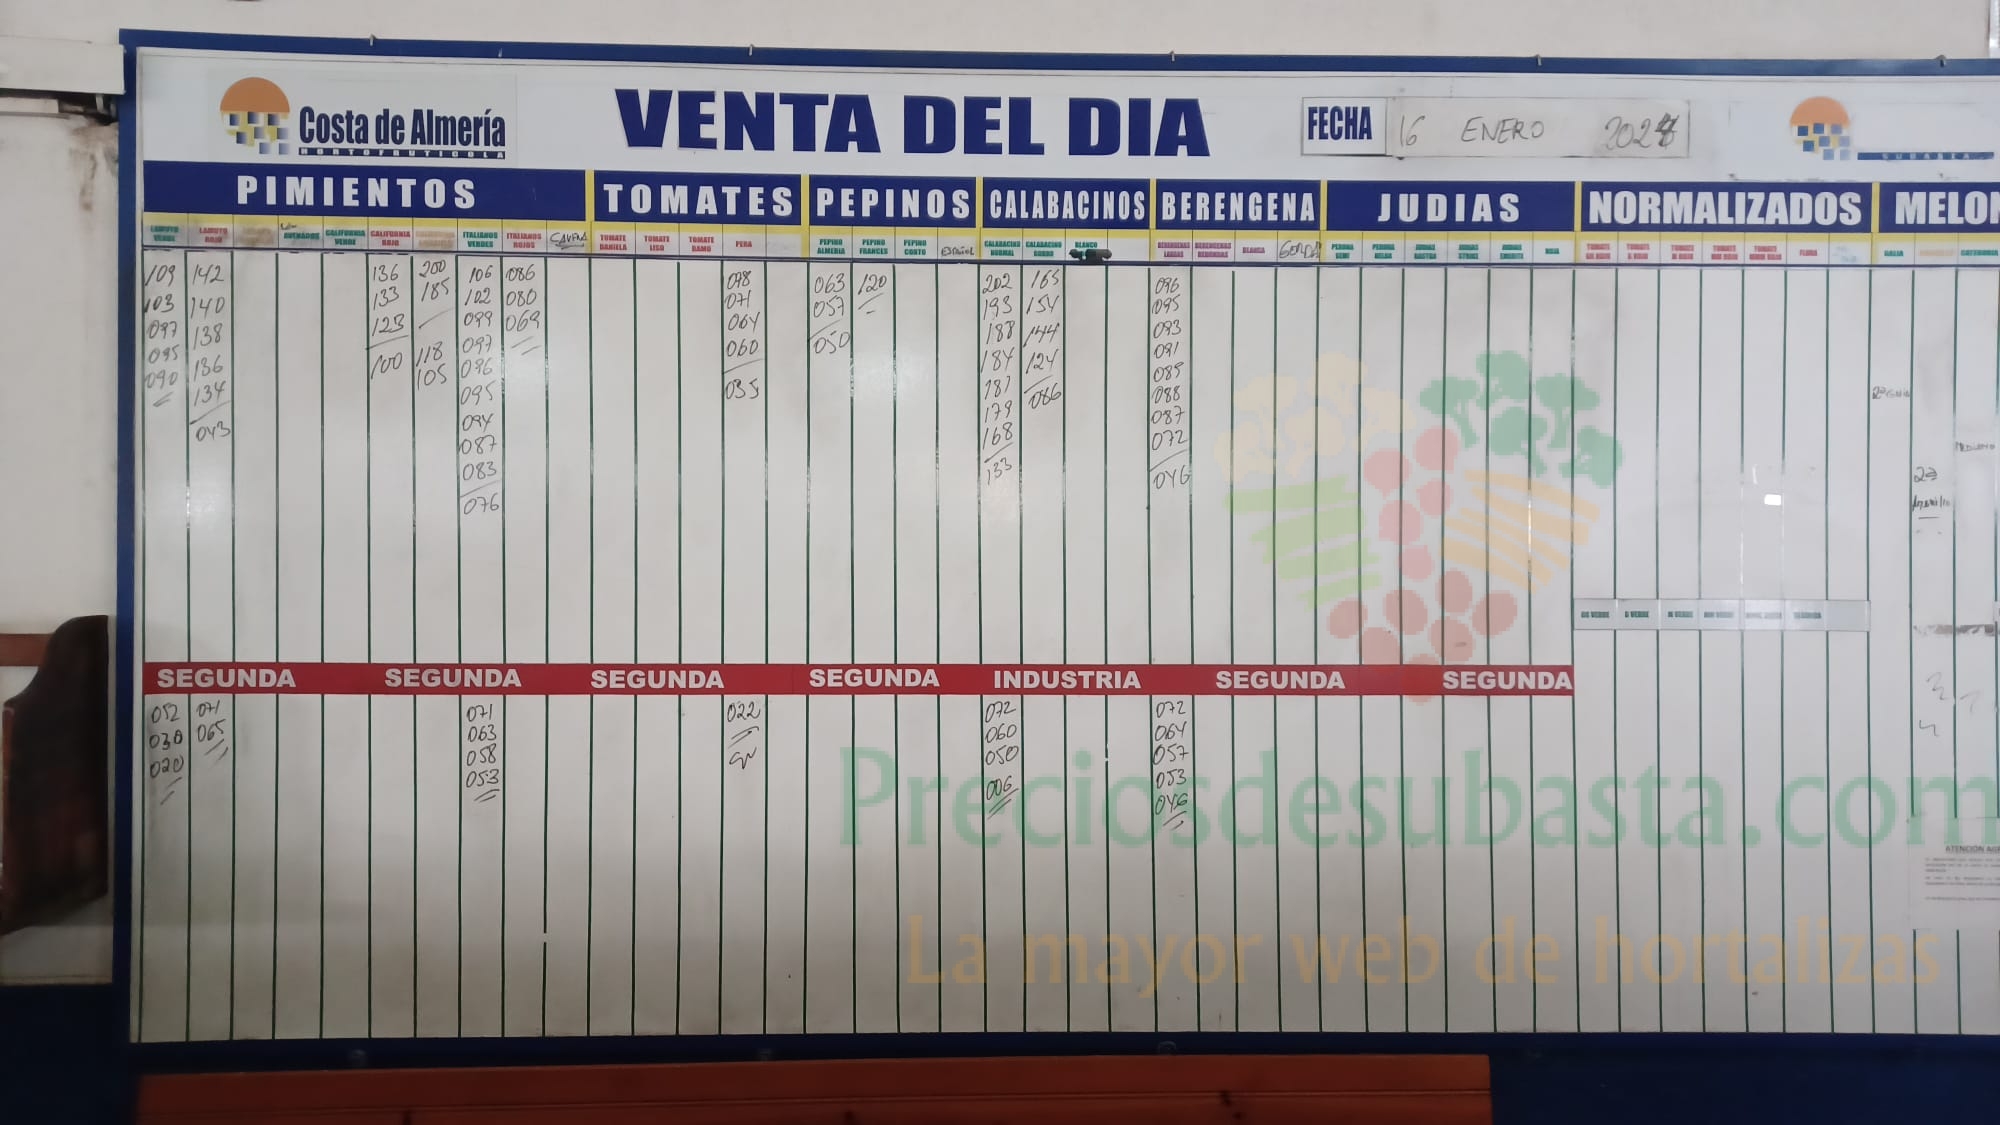 Costa de Almería
HORTOFRUTICOLA
VENTA DEL DIA
FECHA 16 ENERO 2024
SUBASTA
PIMIENTOS TOMATES PEPINOS CALABACINOS BERENGENA JUDIAS NORMALIZADOS MELON
LAMUYO VERDE
LAMUYO ROJO
CALIFORNIA VERDE
CALIFORNIA ROJO
ITALIANOS VERDES
ITALIANOS ROJOS
TOMATE DANIELA
TOMATE LISO
TOMATE RAMO
PERA
PEPINO ALMERIA
PEPINO FRANCES
PEPINO CORTO
ESPAÑOL
CALABACINO NORMAL
CALABACINO GORDO
BLANCO
BERENGENAS LARGAS
BERENGENAS REDONDAS
BLANCA
GORDA
PERONA SEMI
ROJA
GALIA
CATEGORIA
109
103
097
095
090
142
140
138
136
134
043
136
133
123
100
200
185
118
105
106
102
099
097
096
095
094
087
083
076
086
080
069
098
071
064
060
035
063
057
050
120
202
193
188
184
181
179
168
133
165
154
144
124
086
096
095
093
091
089
088
087
072
046
SEGUNDA SEGUNDA SEGUNDA SEGUNDA INDUSTRIA SEGUNDA SEGUNDA
052
030
020
071
065
071
063
058
053
022
072
060
050
006
072
064
057
053
046
Preciosdesubasta.com
La mayor web de hortalizas